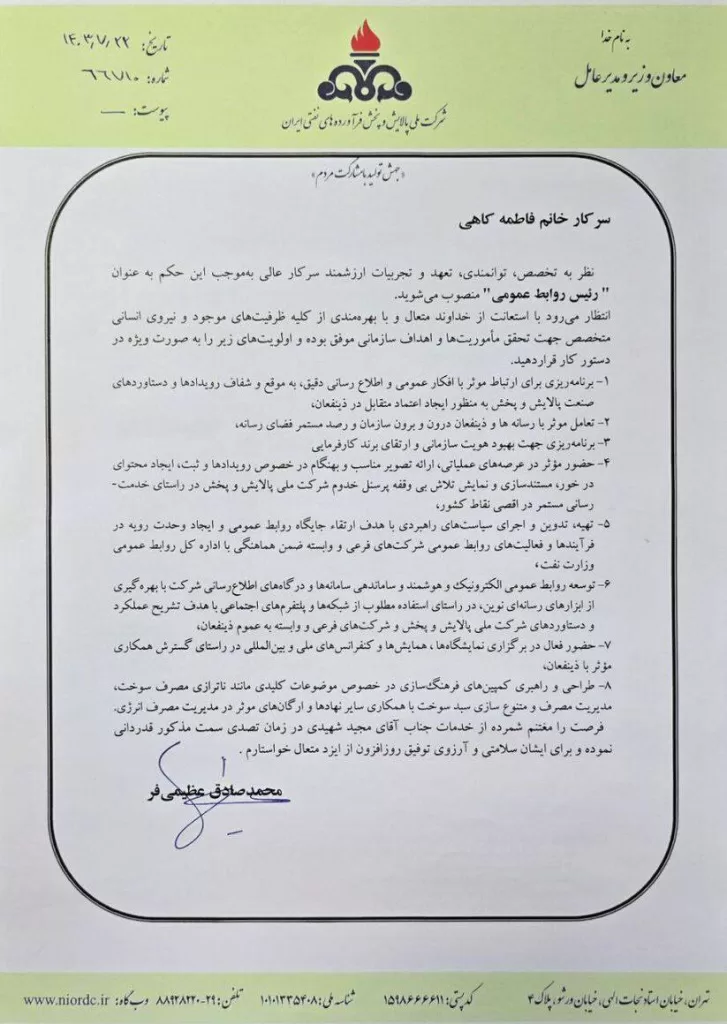 به نام خدا
معاون وزیر و مدیر عامل
تاریخ: ۱۴۰۳/۷/۲۲
شماره: ۶۶۱/۱۰
پیوست: —
شرکت ملی پالایش و پخش فرآورده های نفتی ایران
«جهش تولید با مشارکت مردم»
سرکار خانم فاطمه کاهی
نظر به تخصص، توانمندی، تعهد و تجربیات ارزشمند سرکار عالی به‌موجب این حکم به عنوان
" رئیس روابط عمومی" منصوب می‌شوید.
انتظار می‌رود با استعانت از خداوند متعال و با بهره‌مندی از کلیه ظرفیت‌های موجود و نیروی انسانی
متخصص جهت تحقق مأموریت‌ها و اهداف سازمانی موفق بوده و اولویت‌های زیر را به صورت ویژه در
دستور کار قراردهید.
۱- برنامه‌ریزی برای ارتباط موثر با افکار عمومی و اطلاع رسانی دقیق، به موقع و شفاف رویدادها و دستاوردهای
صنعت پالایش و پخش به منظور ایجاد اعتماد متقابل در ذینفعان،
۲- تعامل موثر با رسانه ها و ذینفعان درون و برون سازمان و رصد مستمر فضای رسانه،
۳- برنامه‌ریزی جهت بهبود هویت سازمانی و ارتقای برند کارفرمایی
۴- حضور مؤثر در عرصه‌های عملیاتی، ارائه تصویر مناسب و بهنگام در خصوص رویدادها و ثبت، ایجاد محتوای
در خور، مستندسازی و نمایش تلاش بی وقفه پرسنل خدوم شرکت ملی پالایش و پخش در راستای خدمت-
رسانی مستمر در اقصی نقاط کشور،
۵- تهیه، تدوین و اجرای سیاست‌های راهبردی با هدف ارتقاء جایگاه روابط عمومی و ایجاد وحدت رویه در
فرآیندها و فعالیت‌های روابط عمومی شرکت‌های فرعی و وابسته ضمن هماهنگی با اداره کل روابط عمومی
وزارت نفت،
۶- توسعه روابط عمومی الکترونیک و هوشمند و ساماندهی سامانه‌ها و درگاه‌های اطلاع‌رسانی شرکت با بهره‌گیری
از ابزارهای رسانه‌ای نوین، در راستای استفاده مطلوب از شبکه‌ها و پلتفرم‌های اجتماعی با هدف تشریح عملکرد
و دستاوردهای شرکت ملی پالایش و پخش و شرکت‌های فرعی و وابسته به عموم ذینفعان،
۷- حضور فعال در برگزاری نمایشگاه‌ها، همایش‌ها و کنفرانس‌های ملی و بین‌المللی در راستای گسترش همکاری
مؤثر با ذینفعان،
۸- طراحی و راهبری کمپین‌های فرهنگ‌سازی در خصوص موضوعات کلیدی مانند ناترازی مصرف سوخت،
مدیریت مصرف و متنوع سازی سبد سوخت با همکاری سایر نهادها و ارگان‌های موثر در مدیریت مصرف انرژی.
فرصت را مغتنم شمرده از خدمات جناب آقای مجید شهیدی در زمان تصدی سمت مذکور قدردانی
نموده و برای ایشان سلامتی و آرزوی توفیق روزافزون از ایزد متعال خواستارم .
محمدصادق عظیمی‌فر
تهران، خیابان استاد نجات الهی، خیابان ورشو، پلاک ۴ کد پستی: ۱۵۹۸۶۶۶۶۱۱ شناسه ملی: ۱۰۱۰۱۳۳۵۴۰۸ تلفن: ۲۹-۸۸۹۲۸۲۲۰ وب گاه: www.niordc.ir